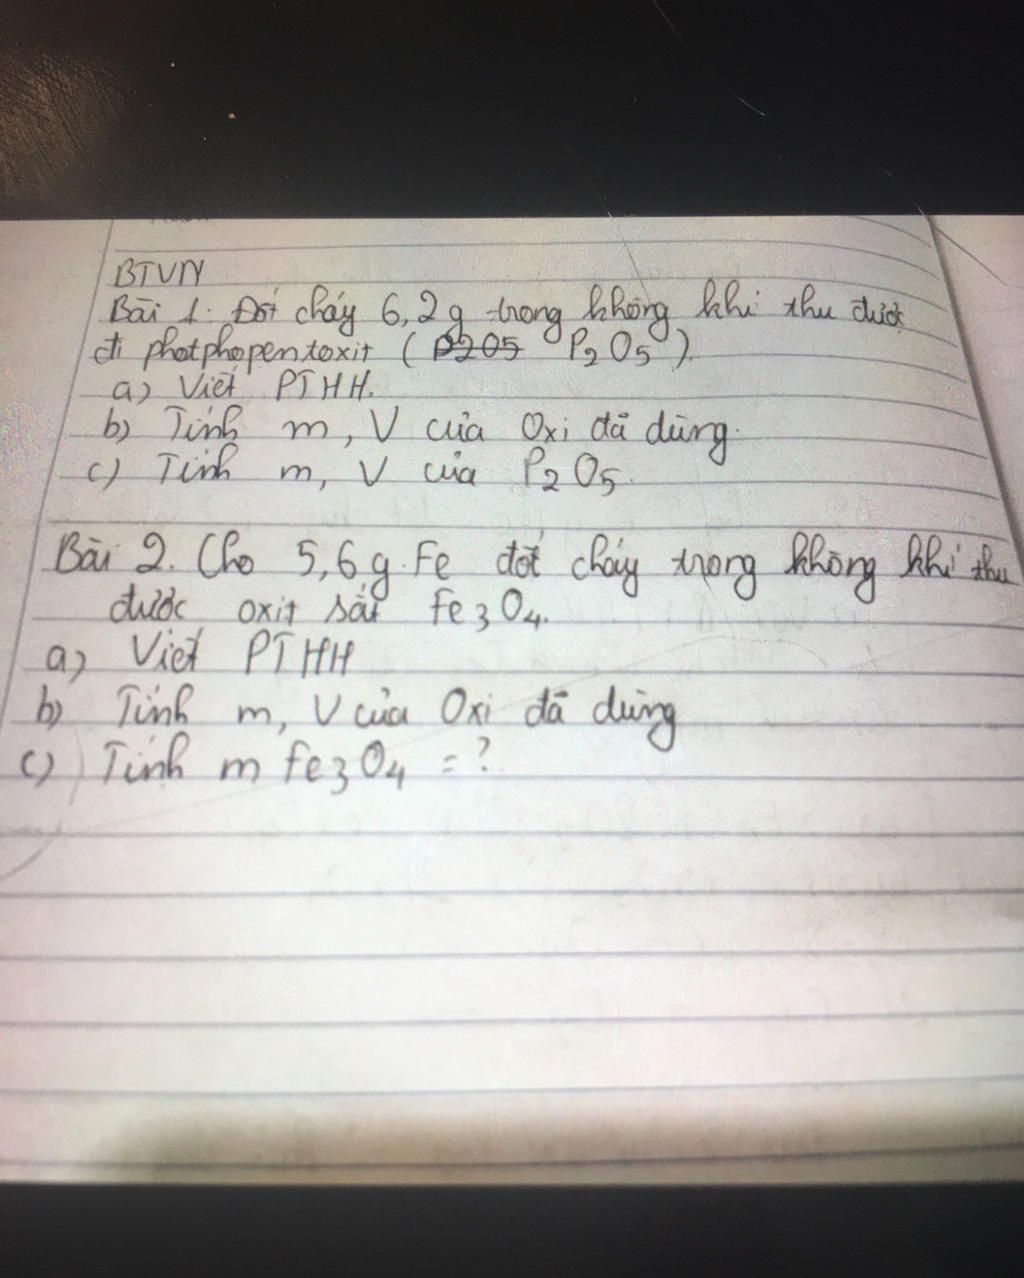 BTVN
Bài 1. Đốt cháy 6,2g trong không khí thu được
đi photphopentoxit (P2O5 P2O5).
a) Viết PTHH.
b) Tính m, V của Oxi đã dùng.
c) Tính m, V của P2O5.
Bài 2. Cho 5,6g Fe đốt cháy trong không khí thu
được oxit sắt Fe3O4.
a) Viết PTHH
b) Tính m, V của Oxi đã dùng
c) Tính m Fe3O4 = ?